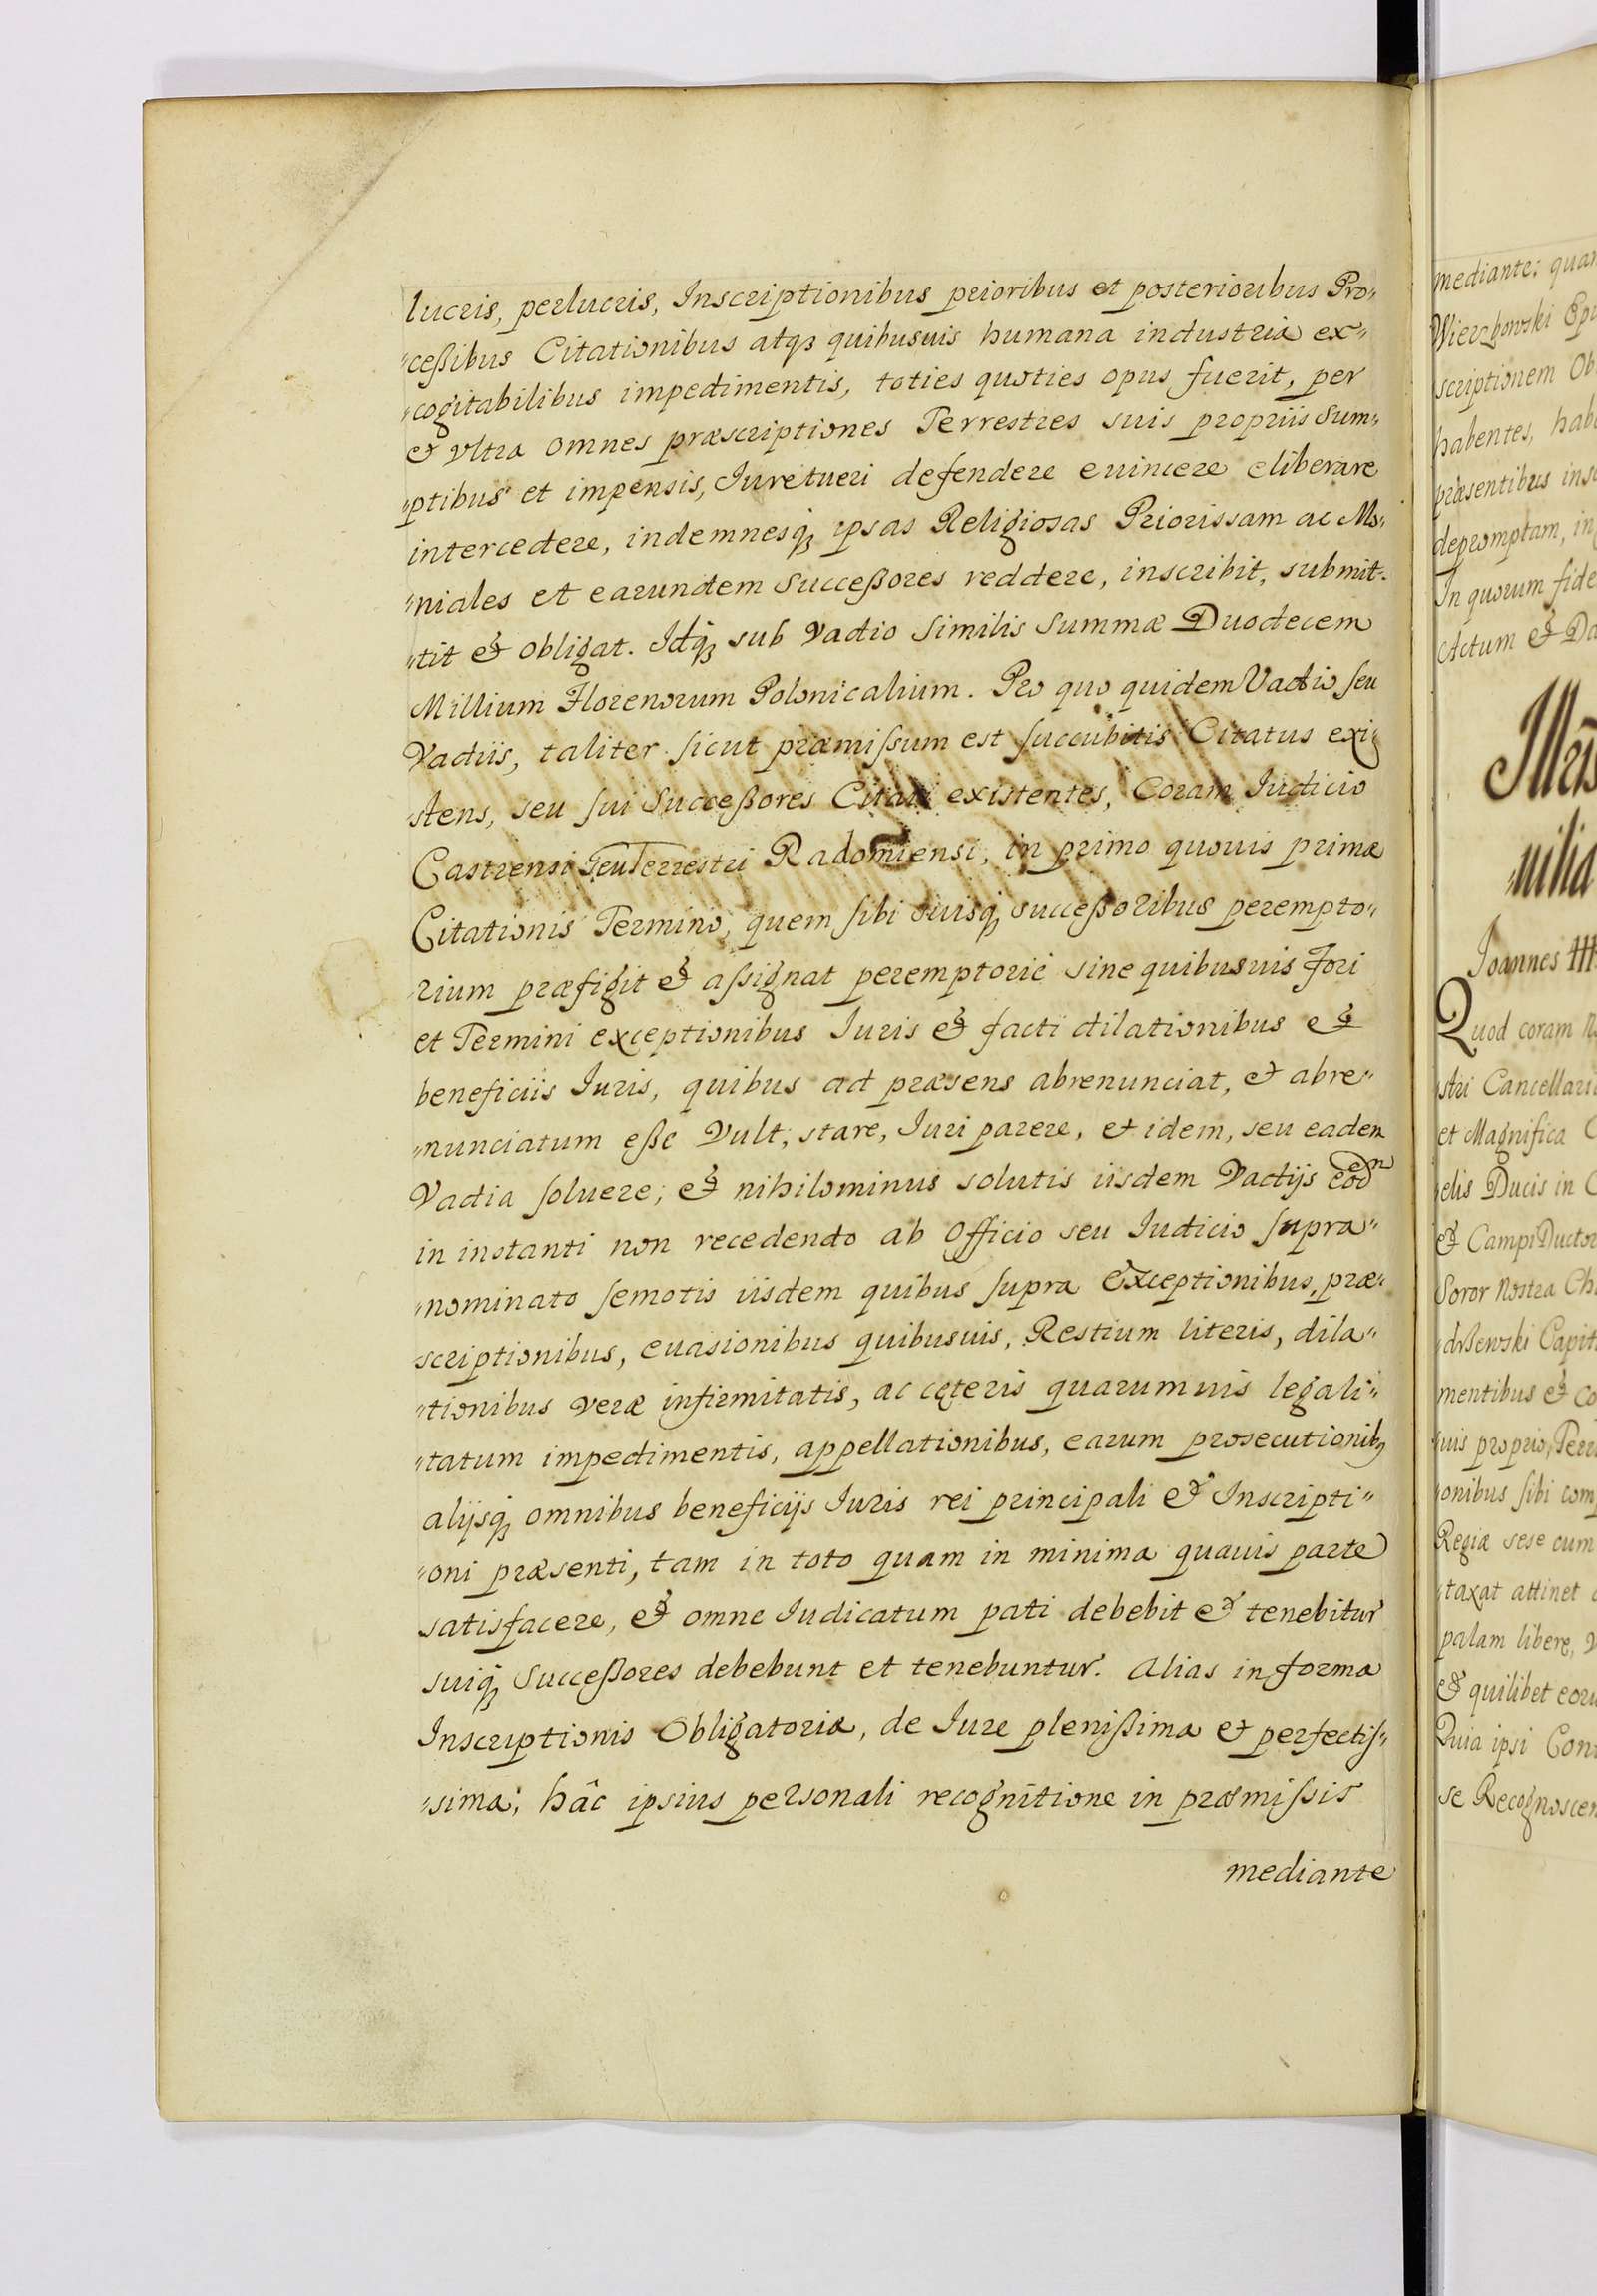 lucris, perlucris, Inscriptionibus prioribus et posterioribus Pro„
„ceßibus Citationibus atqꝫ quibusuis humana industria ex„
„cogitabilibus impedimentis, toties quoties opus fuerit, per
& vltra omnes præscriptiones Terrestres suis propriis Sum„
„ptibus et impensis, Iure tueri defendere euincere eliberare
intercedere, indemnesqꝫ ipsas Religiosas Priorissam ac Mo„
„niales et earundem Succeßores reddere, inscribit, submit„
„tit & obligat. Idqꝫ sub Vadio similis Summæ Duodecem
Millium Florenorum Polonicalium. Pro quo quidem Vadio ſeu
Vadiis, taliter ſicut præmiſsum est ſuccubitis Citatus exi„
„stens, seu ſui Succeßores Citati existentes, Coram Iudicio
Castrensi ſeu Terrestri Radomiensi, in primo quouis primæ
Citationis Termino, quem ſibi suisqꝫ succeßoribus perempto„
„rium præfigit & aſsignat peremptoriè sine quibusuis Fori
et Termini exceptionibus Iuris & facti dilationibus &
beneficiis Iuris, quibus ad præsens abrenunciat, & abre„
„nunciatum eße Vult, stare, Iuri parere, et idem, seu eadem
Vadia ſoluere; & nihilominus solutis iisdem Vadijs eodem
in instanti non recedendo ab Officio seu Iudicio ſupra„
„nominato ſemotis iisdem quibus ſupra Exceptionibus, præ„
scriptionibus, euasionibus quibusuis, Restium literis, dila„
„tionibus veræ infirmitatis, ac cęteris quarumuis legali„
„tatum impedimentis, appellationibus, earum prosecutionibꝫ
alijsqꝫ omnibus beneficijs Iuris rei principali & Inscripti„
„oni præsenti, tam in toto quam in minima quauis parte
satisfacere, & omne Iudicatum pati debebit & tenebitur
suiqꝫ Succeßores debebunt et tenebuntur. Alias in forma
Inscriptionis Obligatoriæ, de Iure pleniſsima & perfectiſ„
„sima; hâc ipsius personali recognitione in præmiſsis
mediante
mediante;
Wierzbowski
scriptionem
habentes,
præsentibus
depromptam, in
In quorum
Actum &
Joannes III
Quod coram
stri
et Magnifica
elis Ducis in
& Campi
Soror Nostra
mentibus &
uis proprio,
onibus ſibi
Regiæ sese cum
taxat attinet
palam libere,
& quilibet
Quia ipsi
se